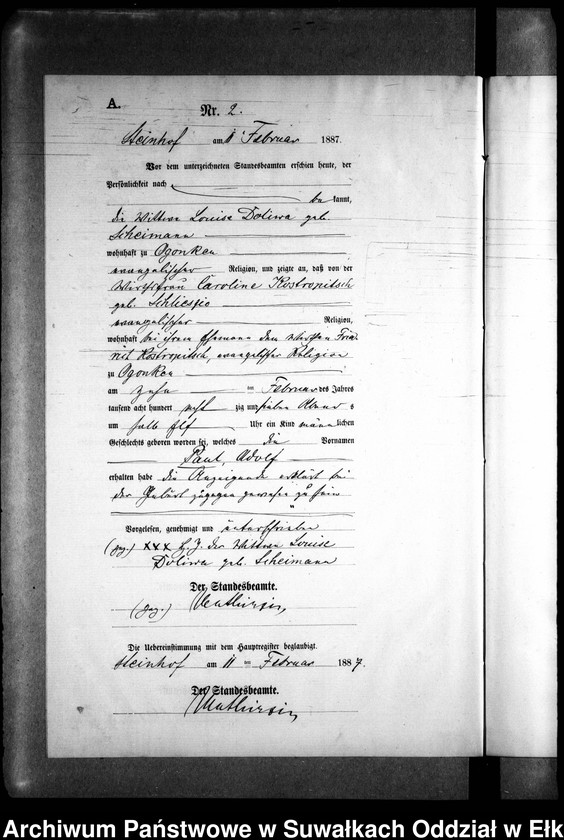 A.
Nr. 2.
Steinhof am 11 Februar 1887.
Vor dem unterzeichneten Standesbeamten erschien heute, der
Persönlichkeit nach
be kannt,
die Wittwe Louise Doliwa geb.
Scheimann
wohnhaft zu Ogonken
evangelischer Religion, und zeigte an, daß von der
Wirthsfrau Caroline Kostropitsch
geb.
evangelischer Religion,
wohnhaft bei ihrem Ehemann dem Wirthen
Kostropitsch, evangelischer Religion
zu Ogonken
am zehn ten Februar des Jahres
tausend acht hundert acht zig und sieben Abend s
um halb elf Uhr ein Kind männ lichen
Geschlechts geboren worden sei, welches die Vornamen
Paul, Adolf
erhalten habe die Anzeigende erklärt bei
der Geburt zugegen gewesen zu sein
Vorgelesen, genehmigt und unterschrieben
(gez.) XXX Hz. der Wittwe Louise
Doliwa geb. Scheimann
Der Standesbeamte.
(gez.)
Die Uebereinstimmung mit dem Hauptregister beglaubigt.
Steinhof am 11 ten Februar 1887.
Der Standesbeamte.
Archiwum Państwowe w Suwałkach Oddział w Ełk